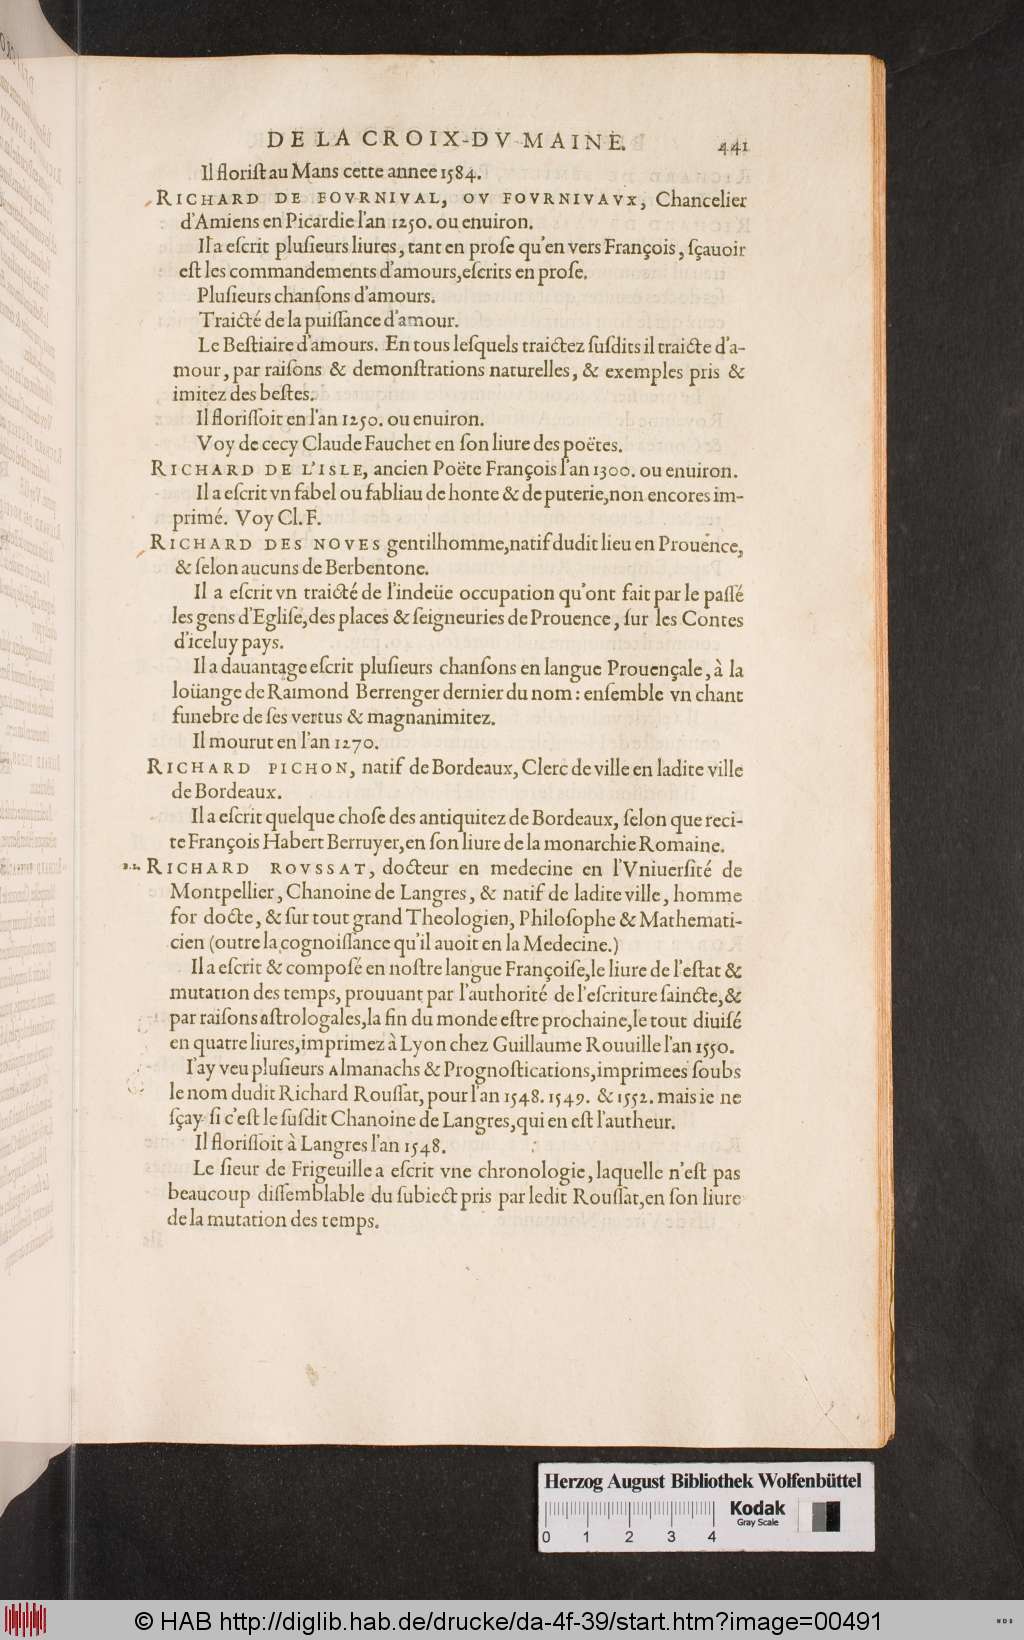 DE LA CROIX-DV MAINE. 441
Il floriſt au Mans cette annee 1584.
RICHARD DE FOVRNIVAL, OV FOVRNIVAVX, Chancelier
d'Amiens en Picardie l'an 1250. ou enuiron.
Il a eſcrit pluſieurs liures, tant en proſe qu'en vers François, ſçauoir
eſt les commandements d'amours, eſcrits en proſe.
Pluſieurs chanſons d'amours.
Traicté de la puiſſance d'amour.
Le Beſtiaire d'amours. En tous leſquels traictez ſuſdits il traicte d'a-
mour, par raiſons & demonſtrations naturelles, & exemples pris &
imitez des beſtes.
Il floriſſoit en l'an 1250. ou enuiron.
Voy de cecy Claude Fauchet en ſon liure des poëtes.
RICHARD DE L'ISLE, ancien Poëte François l'an 1300. ou enuiron.
Il a eſcrit vn fabel ou fabliau de honte & de puterie, non encores im-
primé. Voy Cl. F.
RICHARD DES NOVES gentilhomme, natif dudit lieu en Prouence,
& ſelon aucuns de Berbentone.
Il a eſcrit vn traicté de l'indeüe occupation qu'ont fait par le paſſé
les gens d'Egliſe, des places & ſeigneuries de Prouence, ſur les Contes
d'iceluy pays.
Il a dauantage eſcrit pluſieurs chanſons en langue Prouençale, à la
loüange de Raimond Berrenger dernier du nom: enſemble vn chant
funebre de ſes vertus & magnanimitez.
Il mourut en l'an 1270.
RICHARD PICHON, natif de Bordeaux, Clerc de ville en ladite ville
de Bordeaux.
Il a eſcrit quelque choſe des antiquitez de Bordeaux, ſelon que reci-
te François Habert Berruyer, en ſon liure de la monarchie Romaine.
RICHARD ROVSSAT, docteur en medecine en l'Vniuerſité de
Montpellier, Chanoine de Langres, & natif de ladite ville, homme
for docte, & ſur tout grand Theologien, Philoſophe & Mathemati-
cien (outre la cognoiſſance qu'il auoit en la Medecine.)
Il a eſcrit & compoſé en noſtre langue Françoiſe, le liure de l'eſtat &
mutation des temps, prouuant par l'authorité de l'eſcriture ſaincte, &
par raiſons aſtrologales, la fin du monde eſtre prochaine, le tout diuiſé
en quatre liures, imprimez à Lyon chez Guillaume Rouuille l'an 1550.
I'ay veu pluſieurs Almanachs & Prognoſtications, imprimees ſoubs
le nom dudit Richard Rouſſat, pour l'an 1548. 1549. & 1552. mais ie ne
ſçay ſi c'eſt le ſuſdit Chanoine de Langres, qui en eſt l'autheur.
Il floriſſoit à Langres l'an 1548.
Le ſieur de Frigeuille a eſcrit vne chronologie, laquelle n'eſt pas
beaucoup diſſemblable du ſubiect pris par ledit Rouſſat, en ſon liure
de la mutation des temps.
Herzog August Bibliothek Wolfenbüttel
Kodak
Gray Scale
0 1 2 3 4
© HAB http://diglib.hab.de/drucke/da-4f-39/start.htm?image=00491